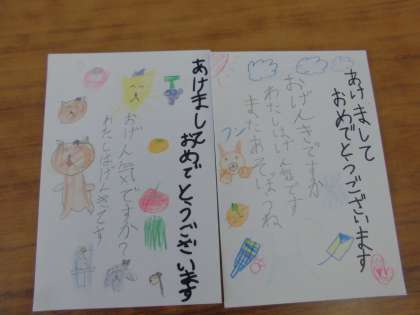 あけましておめでとうございます
おげん気ですか?
わたしはげんきです
あけまして
おめでとうございます
おげんきですか
わたしはげん気です
またあそぼうね